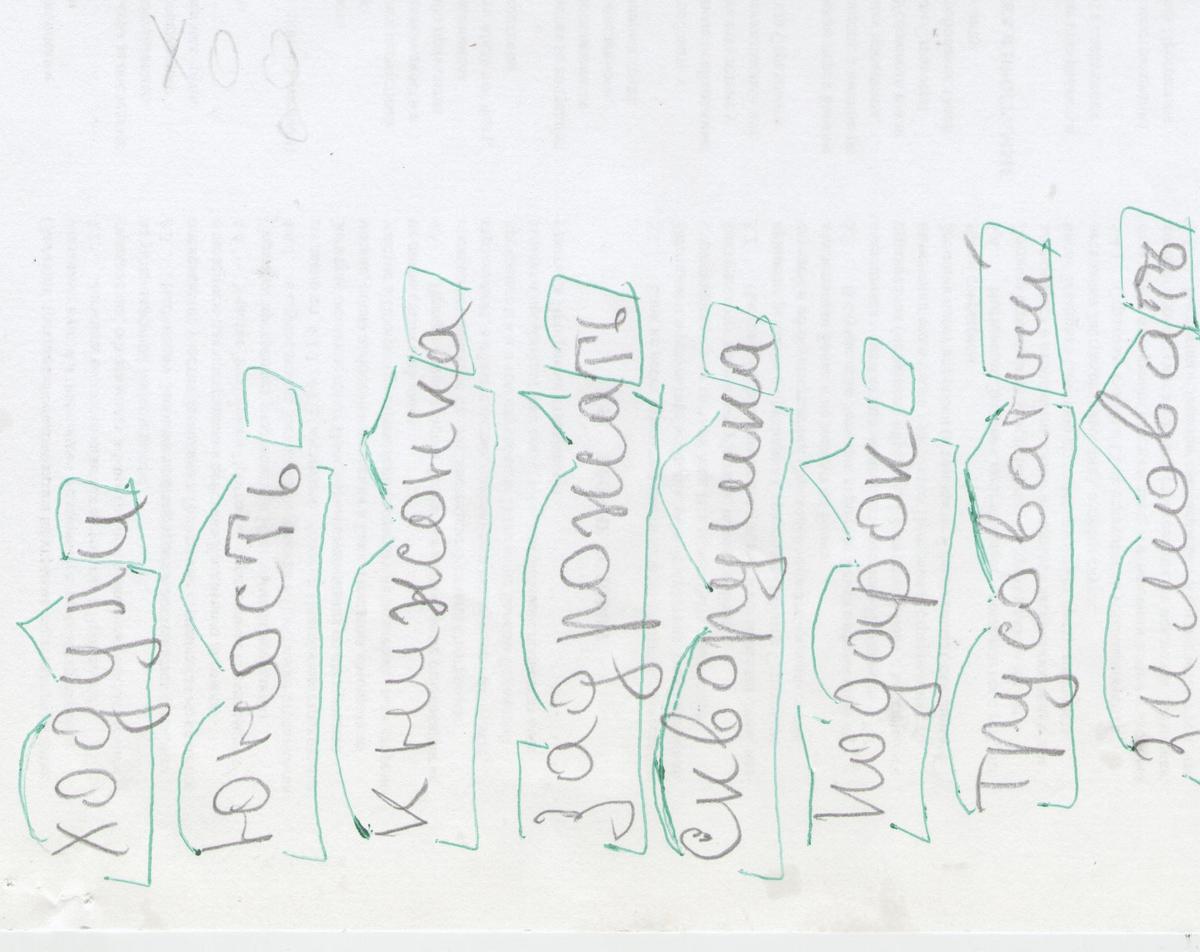 ход
ходули
юность
книжонка
задрожать
скворушка
подарок
трусоватый
зимовать